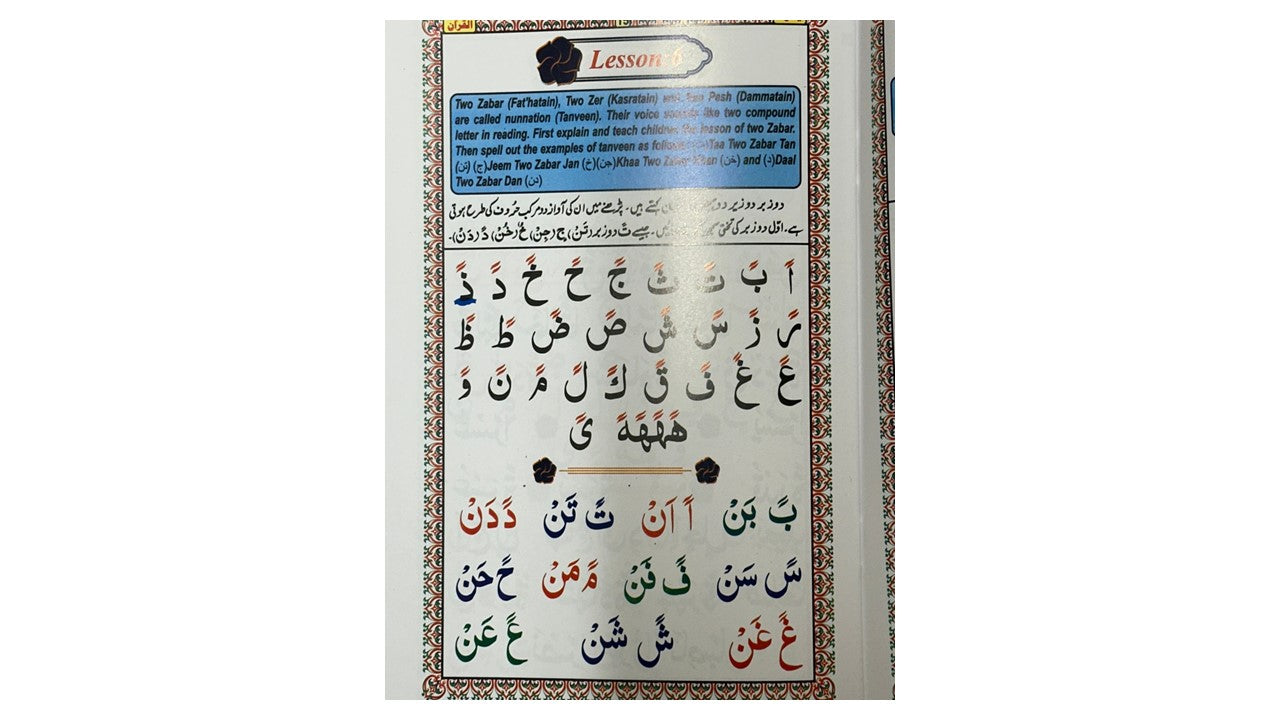 القرآن
Lesson
Two Zabar (Fat'hatain), Two Zer (Kasratain) Pesh (Dammatain)
are called nunnation (Tanveen). Their voice like two compound
letter in reading. First explain and teach children lesson of two Zabar.
Then spell out the examples of tanveen as Taa Two Zabar Tan
(تن) (ج)Jeem Two Zabar Jan (جن)(خ)Khaa Two (خن) and (د)Daal
Two Zabar Dan (دن)
دو زبر دو زیر دو کہتے ہیں۔ پڑھنے میں ان کی آواز دو مرکب حروف کی طرح ہوتی
ہے۔ اوّل دو زبر کی تختی جیسے تً دو زبر (تَنْ)
اً بً تً ثً جً حً خً دً ذً
رً زً سً شً صً ضً طً ظً
عً غً فً قً كً لً مً نً وً
هًهًهًةً ىً
بً بَنْ اً اَنْ تً تَنْ دً دَنْ
سً سَنْ فً فَنْ مً مَنْ حً حَنْ
غً غَنْ شً شَنْ عً عَنْ